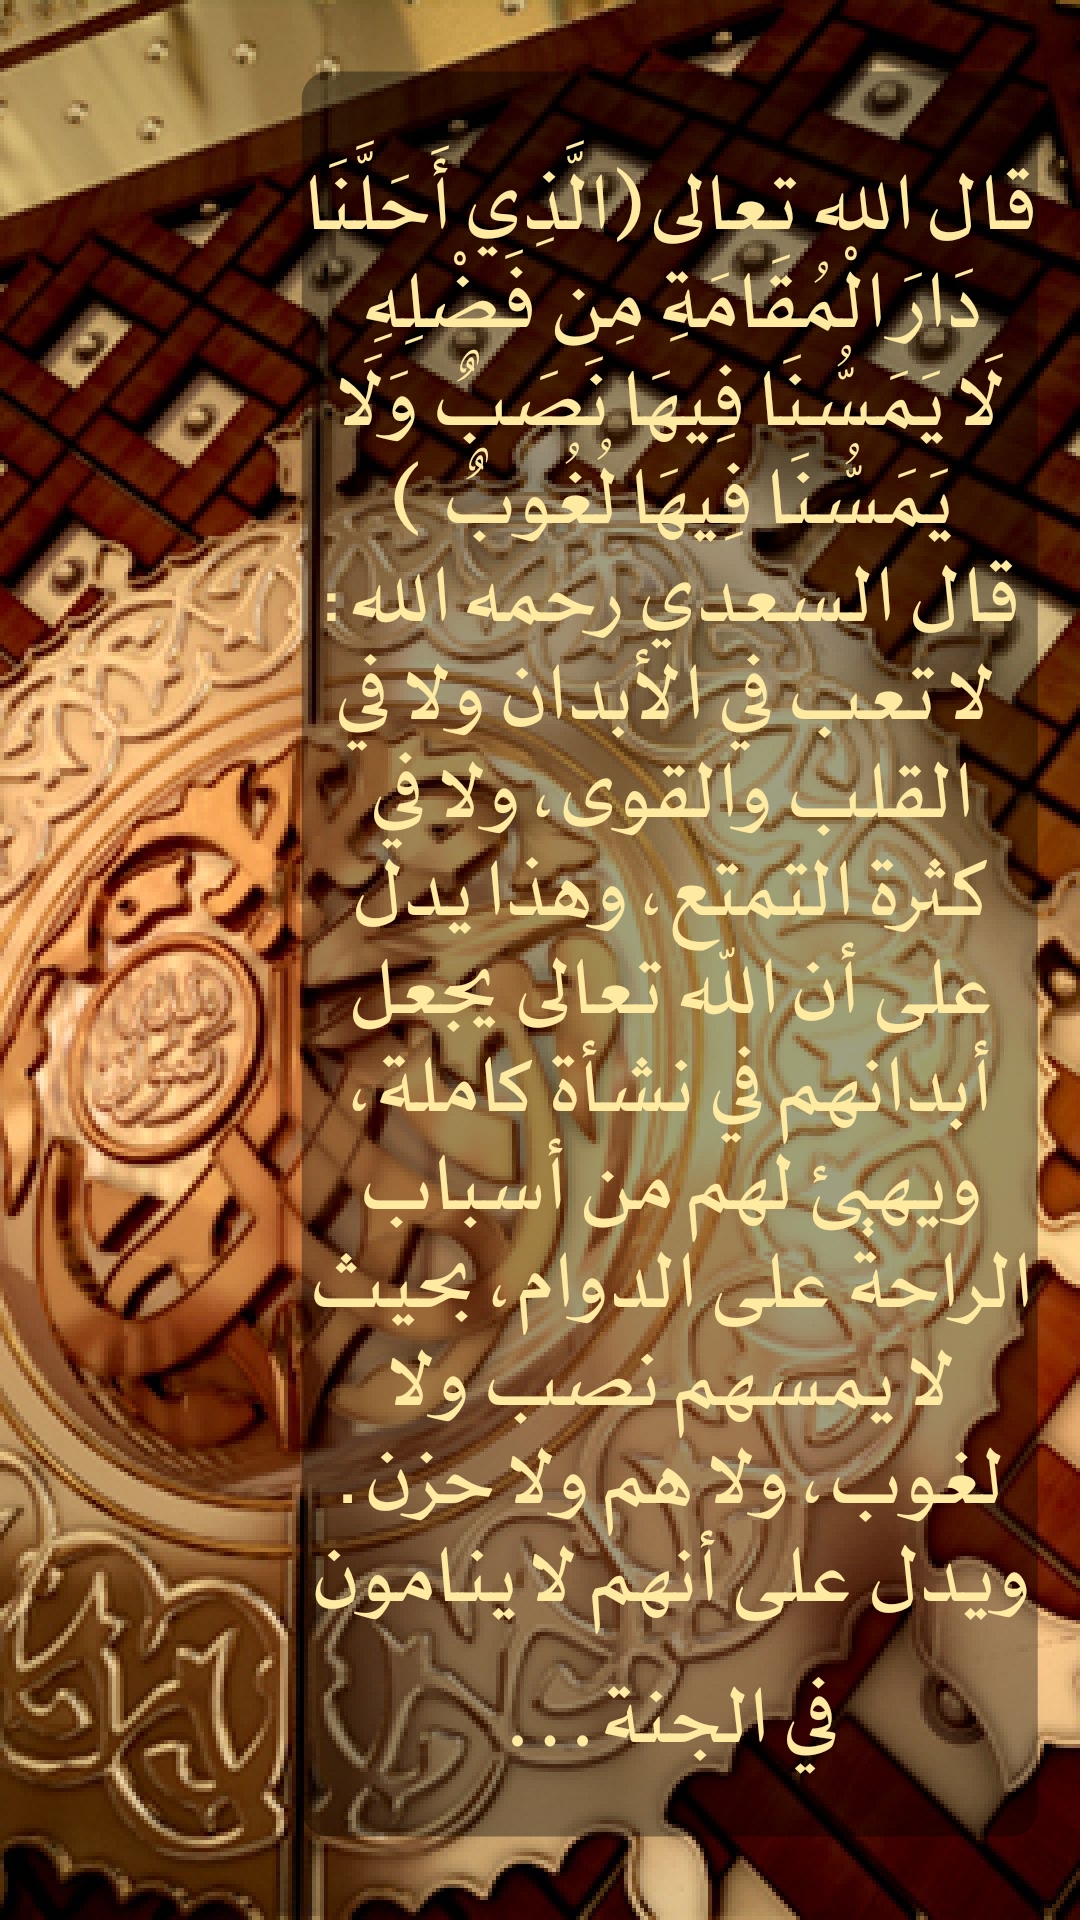 قال الله تعالى (الَّذِي أَحَلَّنَا
دَارَ الْمُقَامَةِ مِن فَضْلِهِ
لَا يَمَسُّنَا فِيهَا نَصَبٌ وَلَا
يَمَسُّنَا فِيهَا لُغُوبٌ )
قال السعدي رحمه الله :
لا تعب في الأبدان ولا في
القلب والقوى، ولا في
كثرة التمتع، وهذا يدل
على أن اللّه تعالى يجعل
أبدانهم في نشأة كاملة،
ويهيئ لهم من أسباب
الراحة على الدوام، بحيث
لا يمسهم نصب ولا
لغوب، ولا هم ولا حزن.
ويدل على أنهم لا ينامون
في الجنة...